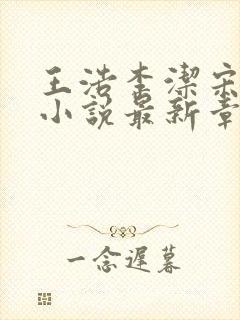 王浩李潔宋
小說最新章
一念遲暮